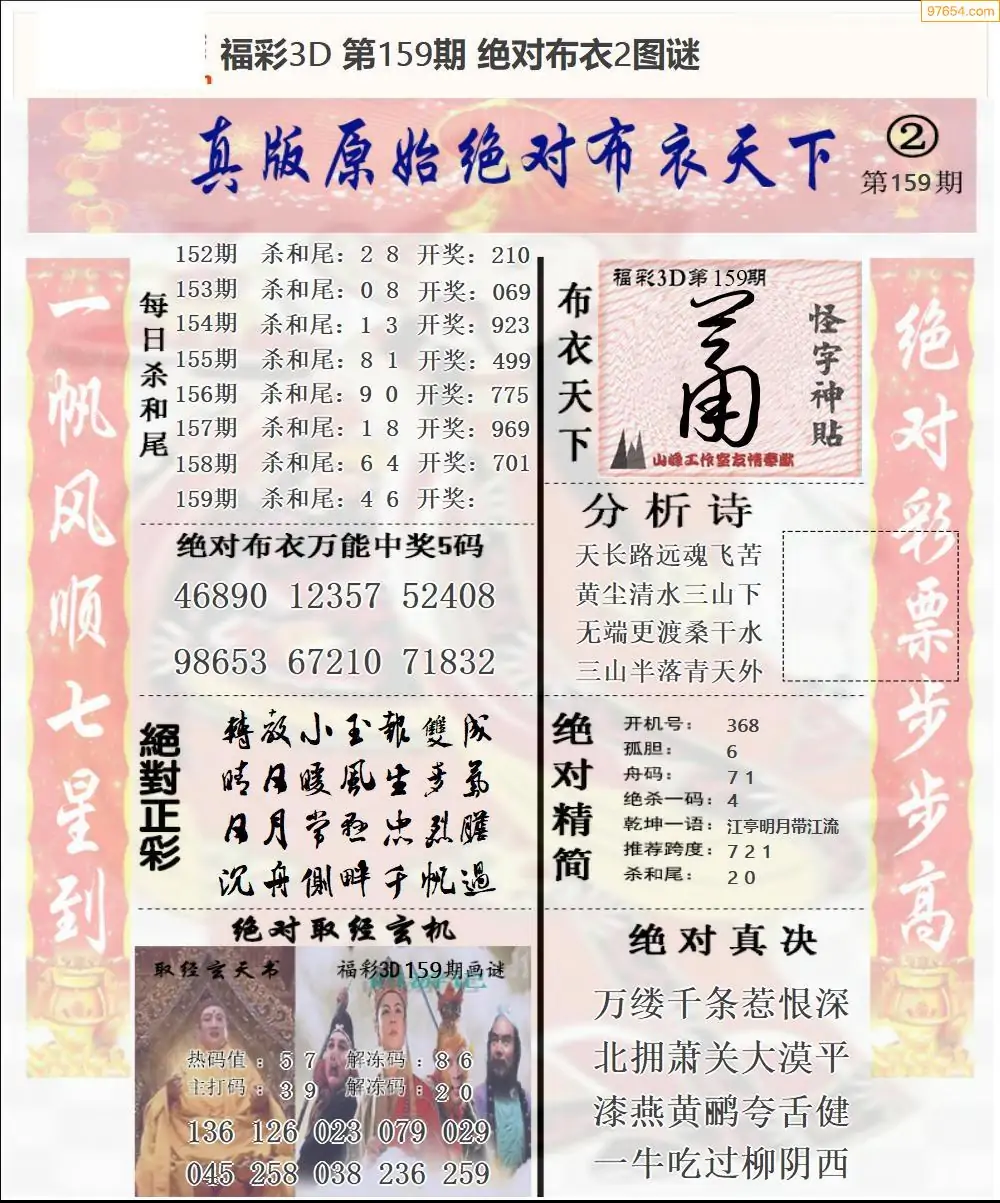 97654.com
福彩3D 第159期 绝对布衣2图谜
真版原始绝对布衣天下
②
第159期
一帆风顺七星到
每日杀和尾
152期 杀和尾：2 8 开奖：210
153期 杀和尾：0 8 开奖：069
154期 杀和尾：1 3 开奖：923
155期 杀和尾：8 1 开奖：499
156期 杀和尾：9 0 开奖：775
157期 杀和尾：1 8 开奖：969
158期 杀和尾：6 4 开奖：701
159期 杀和尾：4 6 开奖：
绝对布衣万能中奖5码
46890 12357 52408
98653 67210 71832
絕對正彩
轉放小玉報雙成
晴日暖風生麥氣
日月常懸忠烈膽
沉舟側畔千帆過
绝对取经玄机
取经玄天书
福彩3D159期画谜
热码值：5 7 解冻码：8 6
主打码：3 9 解冻码：2 0
136 126 023 079 029
045 258 038 236 259
布衣天下
福彩3D第159期
怪字神貼
山峰工作室友情奉献
分析诗
天长路远魂飞苦
黄尘清水三山下
无端更渡桑干水
三山半落青天外
绝对精简
开机号：368
孤胆：6
舟码：7 1
绝杀一码：4
乾坤一语：江亭明月带江流
推荐跨度：7 2 1
杀和尾：2 0
绝对真决
万缕千条惹恨深
北拥萧关大漠平
漆燕黄鹂夸舌健
一牛吃过柳阴西
绝对彩票步步高